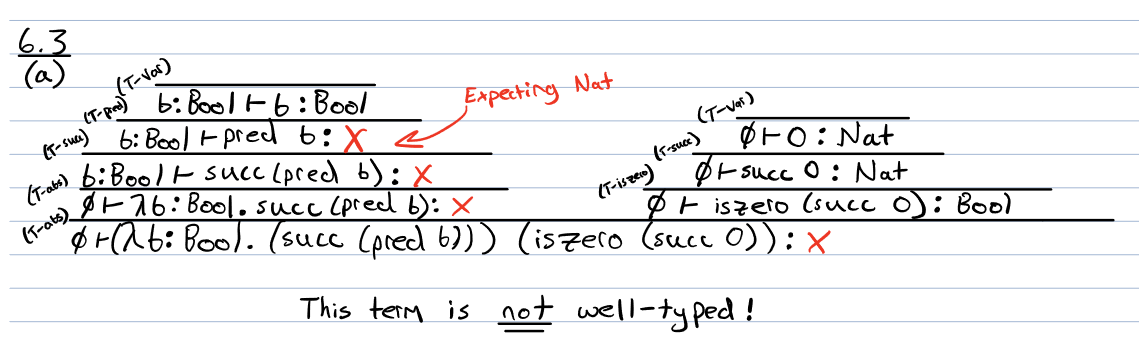 6.3
(a)
(T-Var)
b:Bool ⊢ b : Bool
(T-pred)
b:Bool ⊢ pred b: X
Expecting Nat
(T-succ)
b:Bool ⊢ succ (pred b): X
(T-abs)
∅ ⊢ λb: Bool. succ (pred b): X
(T-Var)
∅ ⊢ 0 : Nat
(T-succ)
∅ ⊢ succ 0 : Nat
(T-iszero)
∅ ⊢ iszero (succ 0) : Bool
(T-abs)
∅ ⊢ (λb: Bool. (succ (pred b))) (iszero (succ 0)) : X
This term is not well-typed!